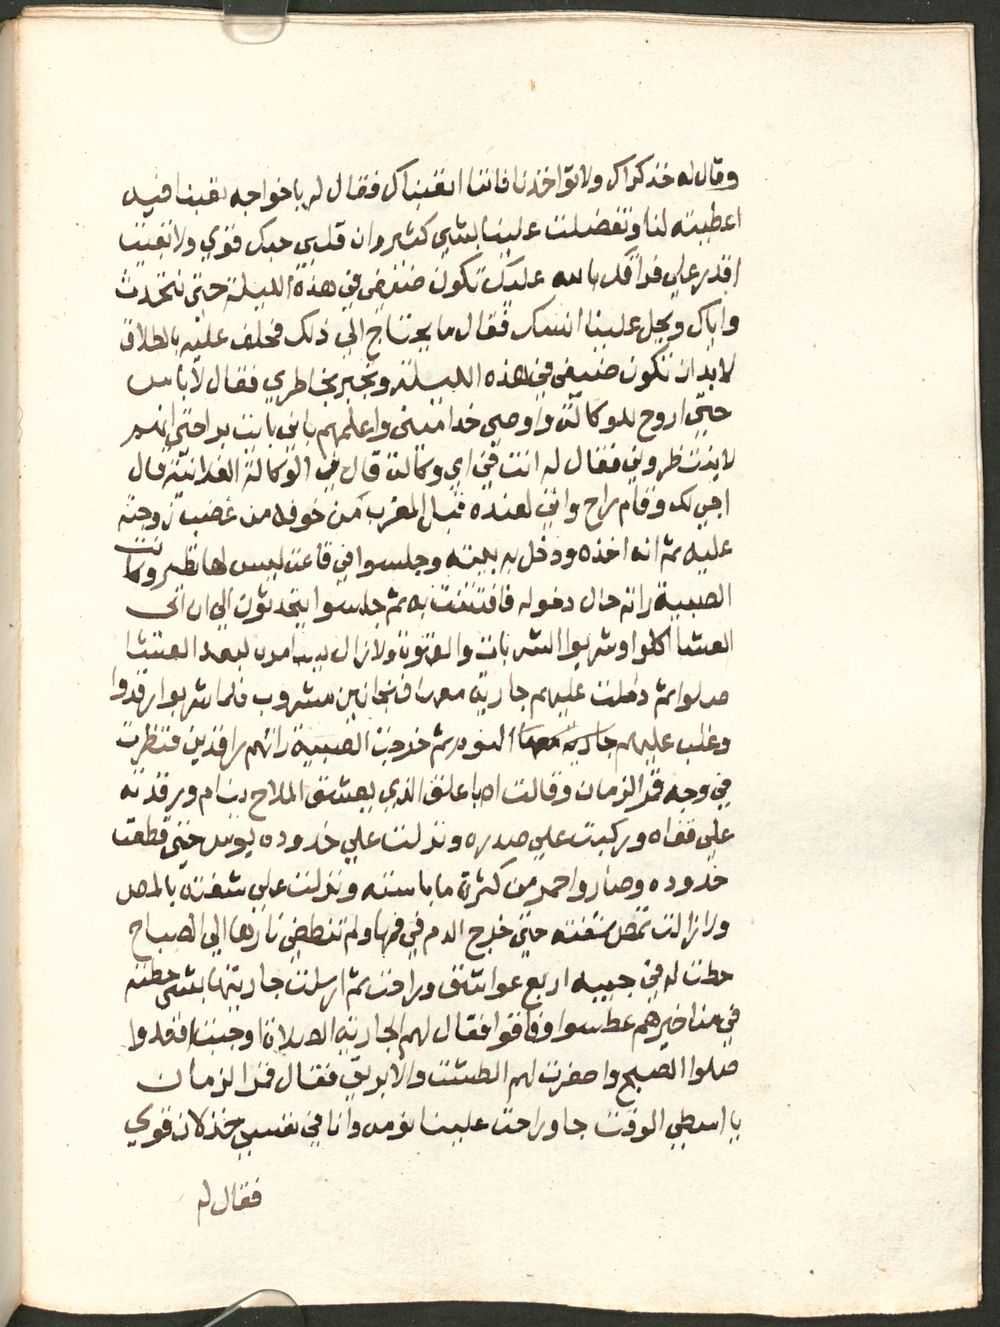 وقال له خذ كراك ولا تواخذنا فاننا اتعبناك فقال له يا خواجه تعبنا فيه
اعطيته لنا وتفضلت علينا بشي كثير وان قلبي حبك قوي ولا بقيت
اقدر علي فراقك بالله عليك تكون ضيفي في هذه الليلة حتي نتحدث
واياك ويحل علينا انسك فقال ما يحتاج الي ذلك فحلف عليه بالطلاق
لا بد ان تكون ضيفي في هذه الليلة وتجبر بخاطري فقال لا باس
حتي اروح للوكالة واوصي خدامي واعلمهم باني بايت برا حتي انهم
لا ينتظروني فقال له انت في اي وكالة قال في الوكالة الفدانية قال
اجي لك وقام راح واتي لعنده قبال المغرب من خوفه من غضب زوجته
عليه ثم انه اخذه ودخل به بيته وجلسوا في قاعة ليس لها نظير وكانت
الصبية راته حال دخوله فافتتنت به ثم جلسوا يتحدثون الي ان اتي
العشا اكلوا وشربوا الشربات والقهوة ولا زال يسامره لبعد العشا
صلوا ثم دخلت عليهم جارية معها فنجانين مشروب فلما شربوا رقدوا
وغلب عليهم جارية معها النوم ثم خرجت الصبية راتهم راقدين فنظرت
في وجه قمر الزمان وقالت اصبا علق الذي يعشق الملاح ينام ورقدته
علي قفاه وركبت علي صدره ونزلت علي خدوده بوس حتي قطعت
خدوده وصاروا حمر من كثرة ما باسته ونزلت علي شفته بالمص
ولا زالت تمص شفته حتي خرج الدم في فمها ولم تنطفي نارها الي الصباح
حطت له في جيبه اربع عواشق وراحت ثم ارسلت جاريتها بشي حطته
في مناخيرهم عطسوا وفاقوا فقال لهم الجارية الصلاة وجبت فقاموا
صلوا الصبح واحضرت لهم الطشت والابريق فقال قمر الزمان
يا اسطي الوقت جا وراحت علينا نومه وانا في نفسي خذلان قوي
فقال له